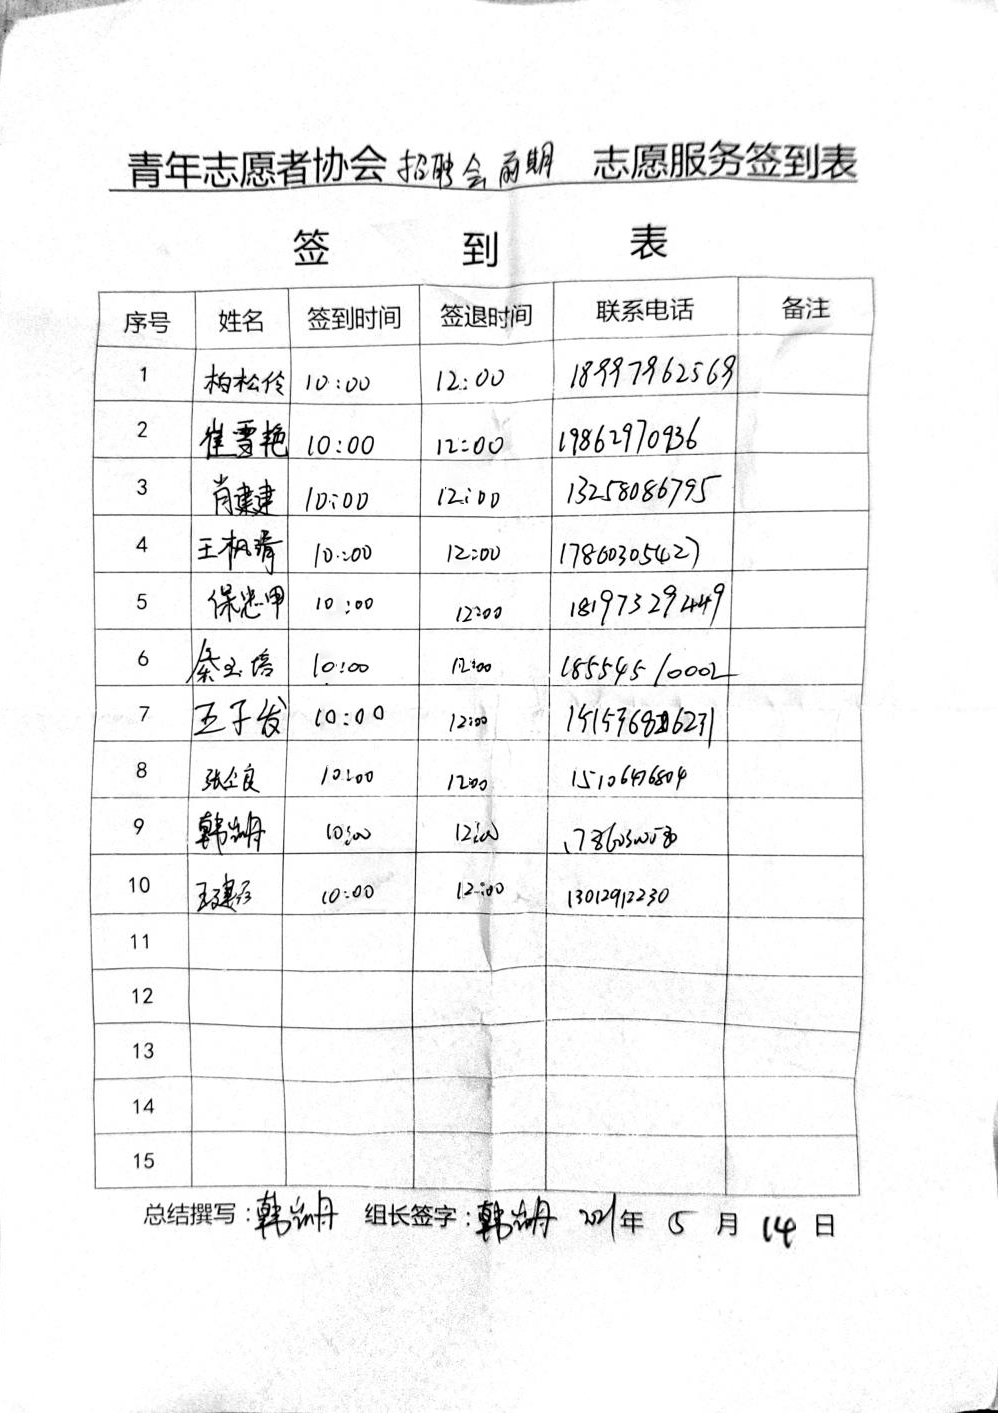 青年志愿者协会招聘会前期 志愿服务签到表
签 到 表
序号 姓名 签到时间 签退时间 联系电话 备注
1 柏松伶 10:00 12:00 18997962569
2 崔雪艳 10:00 12:00 19862970936
3 肖建建 10:00 12:00 13258086795
4 王枫清 10:00 12:00 17860305427
5 保忠甲 10:00 12:00 18197329449
6 秦玉培 10:00 12:00 18554510002
7 王子俊 10:00 12:00
8 10:00 12:00
9 韩 10:00 12:00
10 王建 10:00 12:00 13012912230
11
12
13
14
15
总结撰写:韩 组长签字:韩 2021年 5 月 14 日